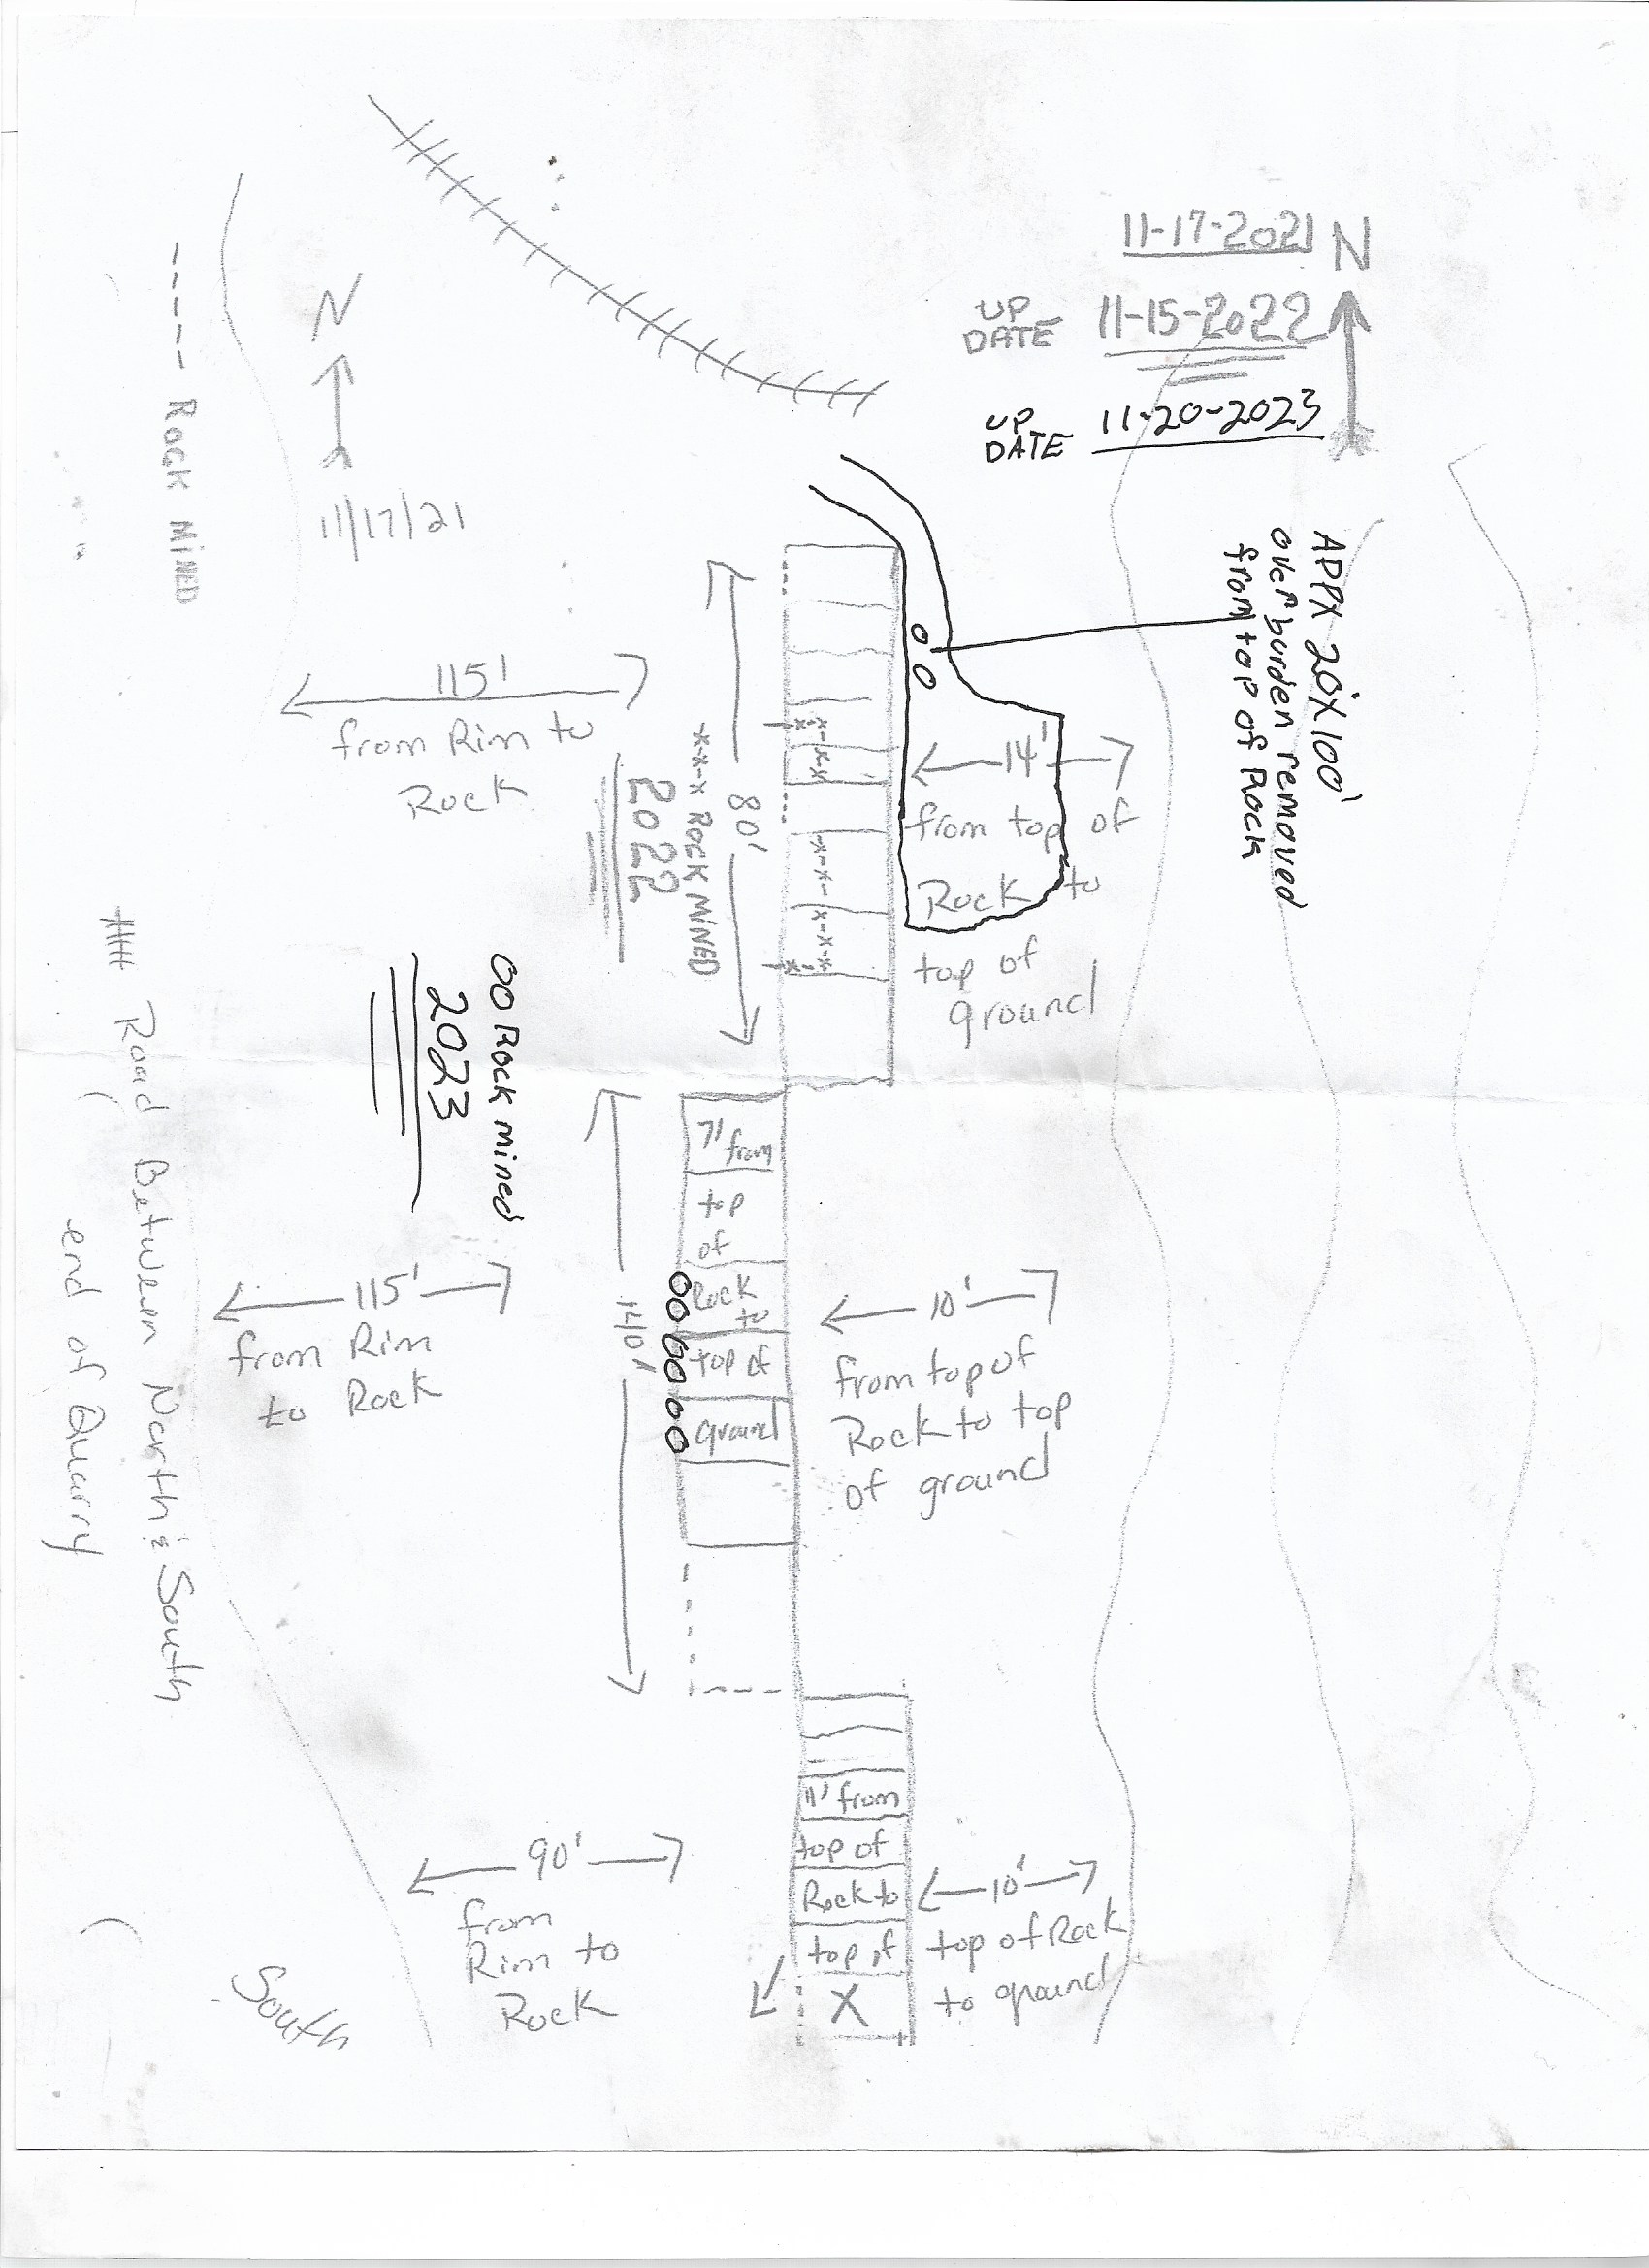 11-17-2021 N
UP DATE 11-15-2022
UP DATE 11-20-2023
N
11/17/21
----- Rock MINED
APPX 20'X100'
overburden removed
from top of Rock
115'
from Rim to
Rock
80'
-x-x-x ROCK MINED
2022
14'
from top of
Rock to
top of
ground
OO Rock mined
2023
Road Between North & South
end of Quarry
7' from
top
of
Rock
to
top of
ground
115'
from Rim
to Rock
10'
from top of
Rock to top
of ground
11' from
top of
Rock to
top of
X
90'
from
Rim to
Rock
10'
top of Rock
to ground
South